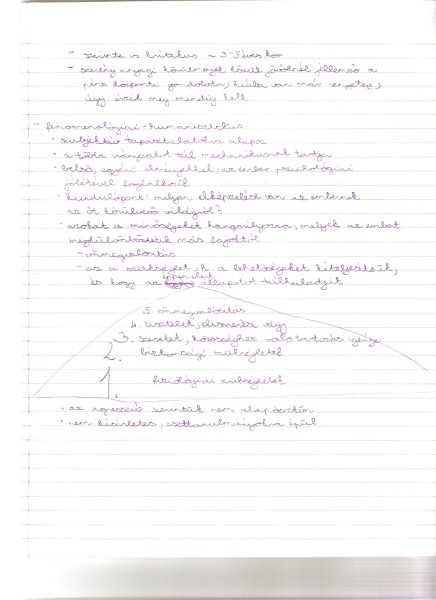 - szerinte is kritikus a 3-5 éves kor
- szerény anyagi körülmények közül jövőknél jellemző a
pénz központi gondolata, hiába van már rengeteg,
úgy érzik még mindig kell
- fenomenológiai-humanisztikus
• szubjektív tapasztalatokra alapoz
• a többi irányzatot túl mechanikusnak tartja
• belső, egyéni élményekkel, az ember pszichológiai
jólétével foglalkozik
• kiindulópont: milyen elképzelése van az embernek
az őt körülvevő világról?
• azokat a minőségeket hangsúlyozza, melyek az embert
megkülönböztetik más fajoktól
- önmegvalósítás
- az a szükséglet, h a lehetőségeket kiteljesítsük,
éppen elért
és hogy az állapotot túlhaladjuk
5. önmegvalósítás
4. tisztelet, elismerési vágy
3. szeretet, közösséghez való tartozás igénye
2. biztonsági szükségletek
1. fiziológiai szükségletek
• az agresszió szerintük nem alapösztön
• nem kísérletes, esettanulmányokra épül